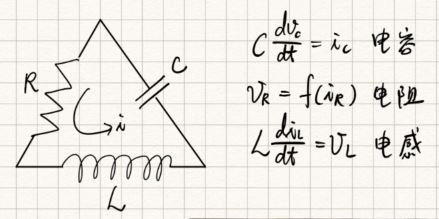 R
C
i
L
C dv_c/dt = i_c 电容
v_R = f(i_R) 电阻
L di_L/dt = v_L 电感